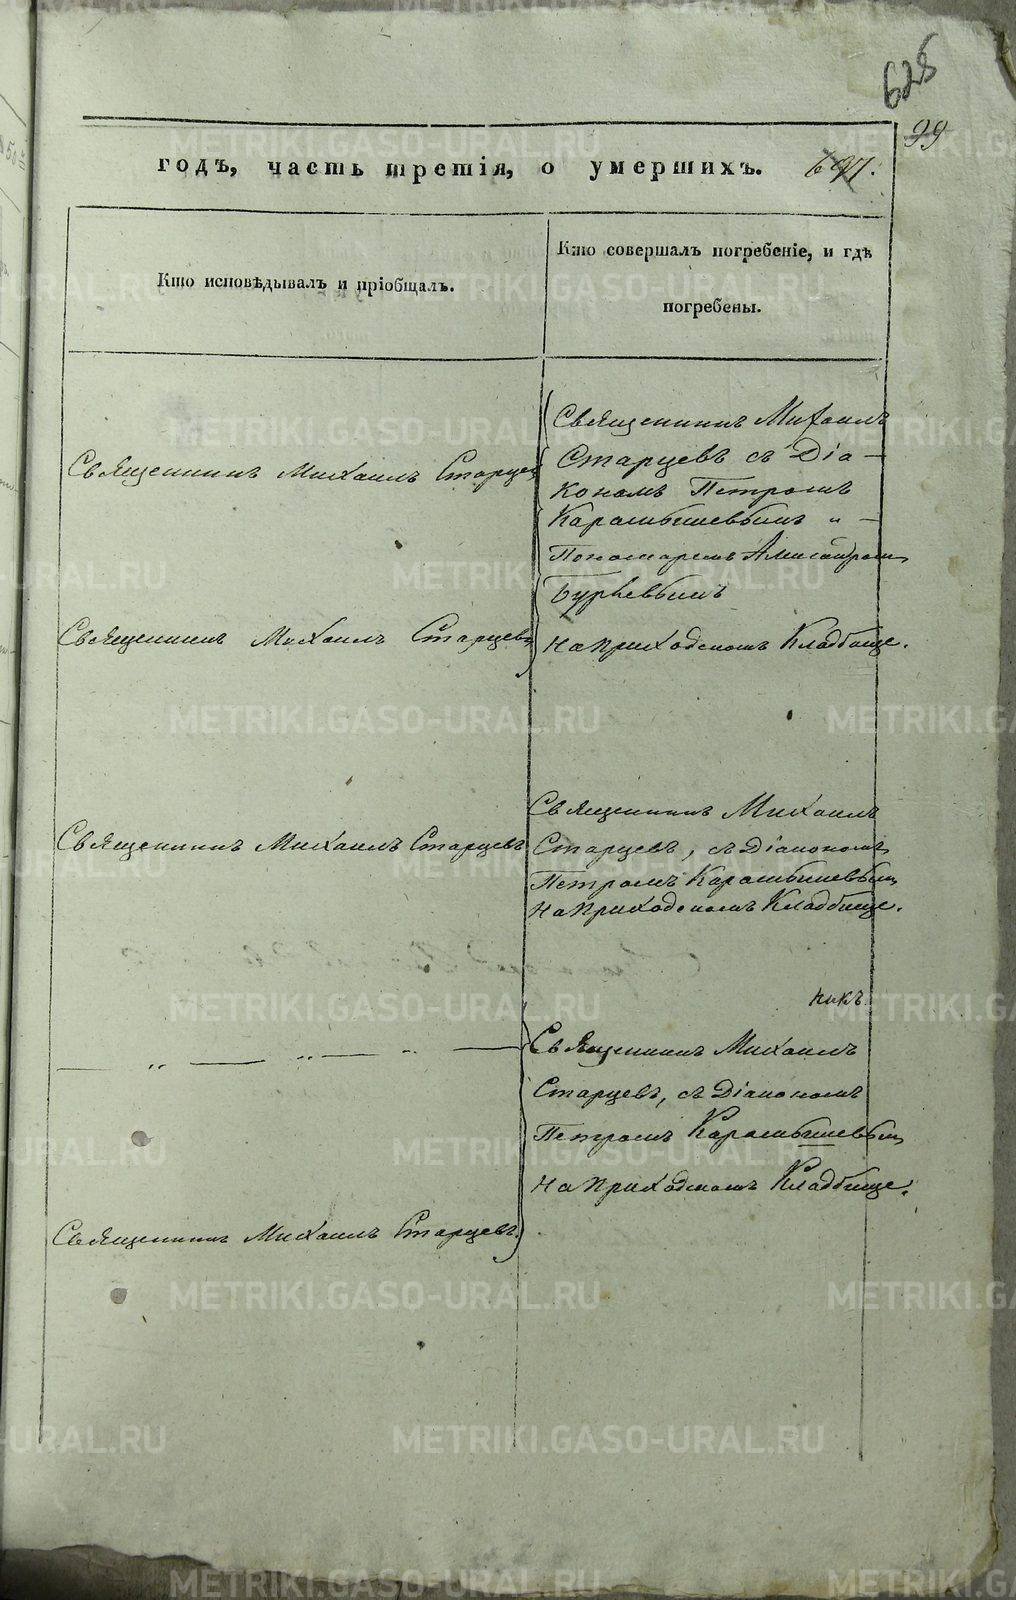 625
99
годъ, часть третія, о умершихъ. 697.
Кто исповѣдывалъ и пріобщалъ.
Кто совершалъ погребеніе, и гдѣ
погребены.
Священникъ Михаилъ Старцевъ
Священникъ Михаилъ
Старцевъ съ Діа-
кономъ Петромъ
Карамышевымъ „ -
Пономаремъ Александромъ
Священникъ Михаилъ Старцевъ
на приходскомъ Кладбище.
Священникъ Михаилъ Старцевъ
Священникъ Михаилъ
Старцевъ, съ Діакономъ
Петромъ Карамышевым
на приходскомъ Кладбище.
никъ
Священникъ Михаилъ
Старцевъ, съ Діакономъ
Петромъ Карамышевым
на приходскомъ Кладбище.
Священникъ Михаилъ Старцевъ.
METRIKI.GASO-URAL.RU